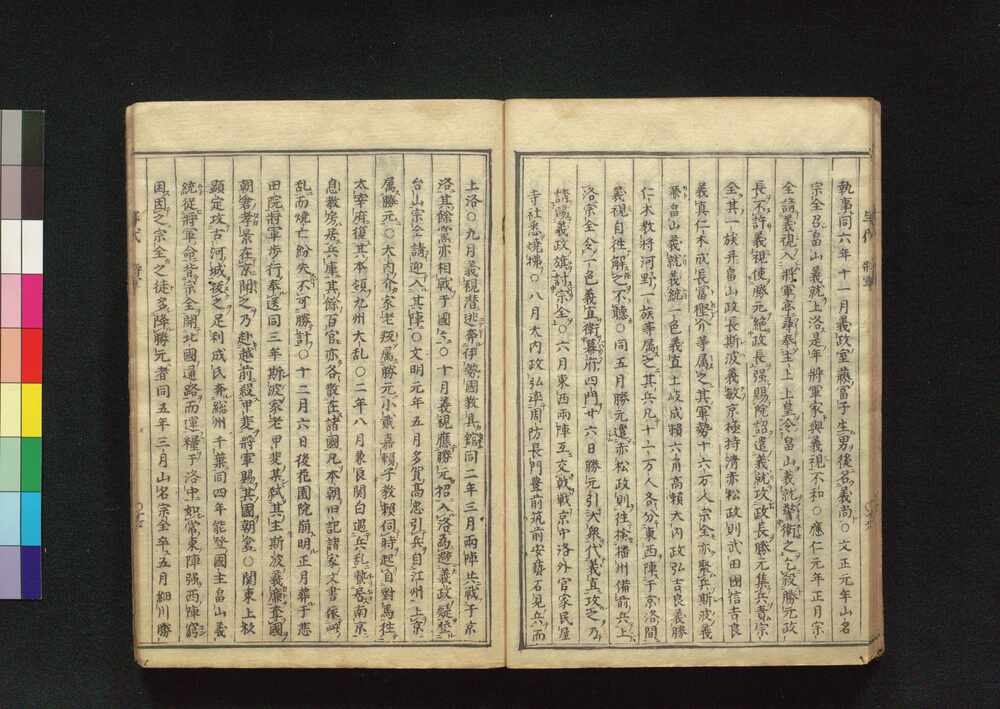 執事同六年十一月義政室藤富子生男後名義尚○文正元年山名
宗全召畠山義就上洛是年將軍家與義視不和○應仁元年正月宗
全請義視入將軍亭尋奉主上上皇令畠山義就警衛之乞殺勝元政
長不許義視使勝元絶政長强賜院詔遣義就攻政長勝元集兵責宗
全其一族并畠山政長斯波義敏京極持清赤松政則武田國信吉良
義真仁木成長富樫介等属之其軍勢十六万人宗全亦聚兵斯波義
廉畠山義就義統一色義直土岐成頼六角高頼大内政弘吉良義勝
仁木教將河野一族等属之其兵凡十一万人各分東西陣于京洛間
義視自徃解之不聽○同五月勝元遣赤松政則徃挨播州備前兵上
洛宗全令一色義直衛幕府四門廿六日勝元引大衆代義直攻之乃
請義政旗討宗全○六月東西兩陣互交戟戰京中洛外官家民屋
寺社悉焼掃○八月大内政弘率周防長門豊前筑前安藝石見兵而
上洛○九月義視潜逃奔伊勢國教具館同二年三月兩陣共戰于京
洛其餘黨亦相戰于國々○十月義視應勝元招入洛為避義政疑登
台山宗全請迎入其陣○文明元年五月多賀高忠引兵自江州上京
属勝元○大内介家老叛属勝元小貳嘉頼子教頼伺時起自對馬徃
太宰府復其本領九州大乱○二年八月兼良関白避兵乱蟄居南京
息教房居兵庫其餘百官亦各散在諸國凡本朝旧記諸家文書依
乱而燒亡紛失不可勝計○十二月六日後花園院崩明正月葬于悲
田院將軍歩行奉送同三年斯波家老甲斐某弑其主斯波義廉奪國
朝倉孝景在京聞之乃赴越前殺甲斐將軍賜其國朝倉○関東上杦
顕定攻古河城拔之足利成氏奔総州千葉同四年能登國主畠山義
統從將軍命背宗全開北國通路而運糧于洛中如常東陣强西陣窮
困因之宗全之徒多降勝元者同五年三月山名宗全卒五月細川勝